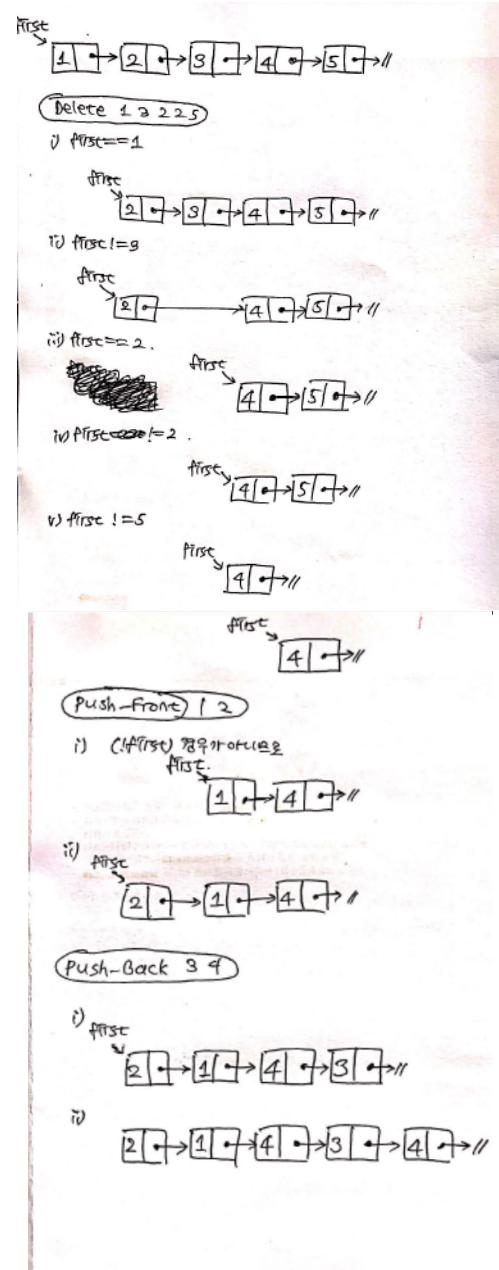 first
1 2 3 4 5
Delete 1 3 2 2 5
i) first==1
first
2 3 4 5
ii) first!=3
first
2 4 5
iii) first==2.
first
4 5
iv) first != 2.
first
4 5
v) first !=5
first
4
first
4
Push-Front 1 2
i) (!first) 경우가 아니므로
first.
1 4
ii)
first
2 1 4
Push-Back 3 4
i)
first
2 1 4 3
ii)
2 1 4 3 4